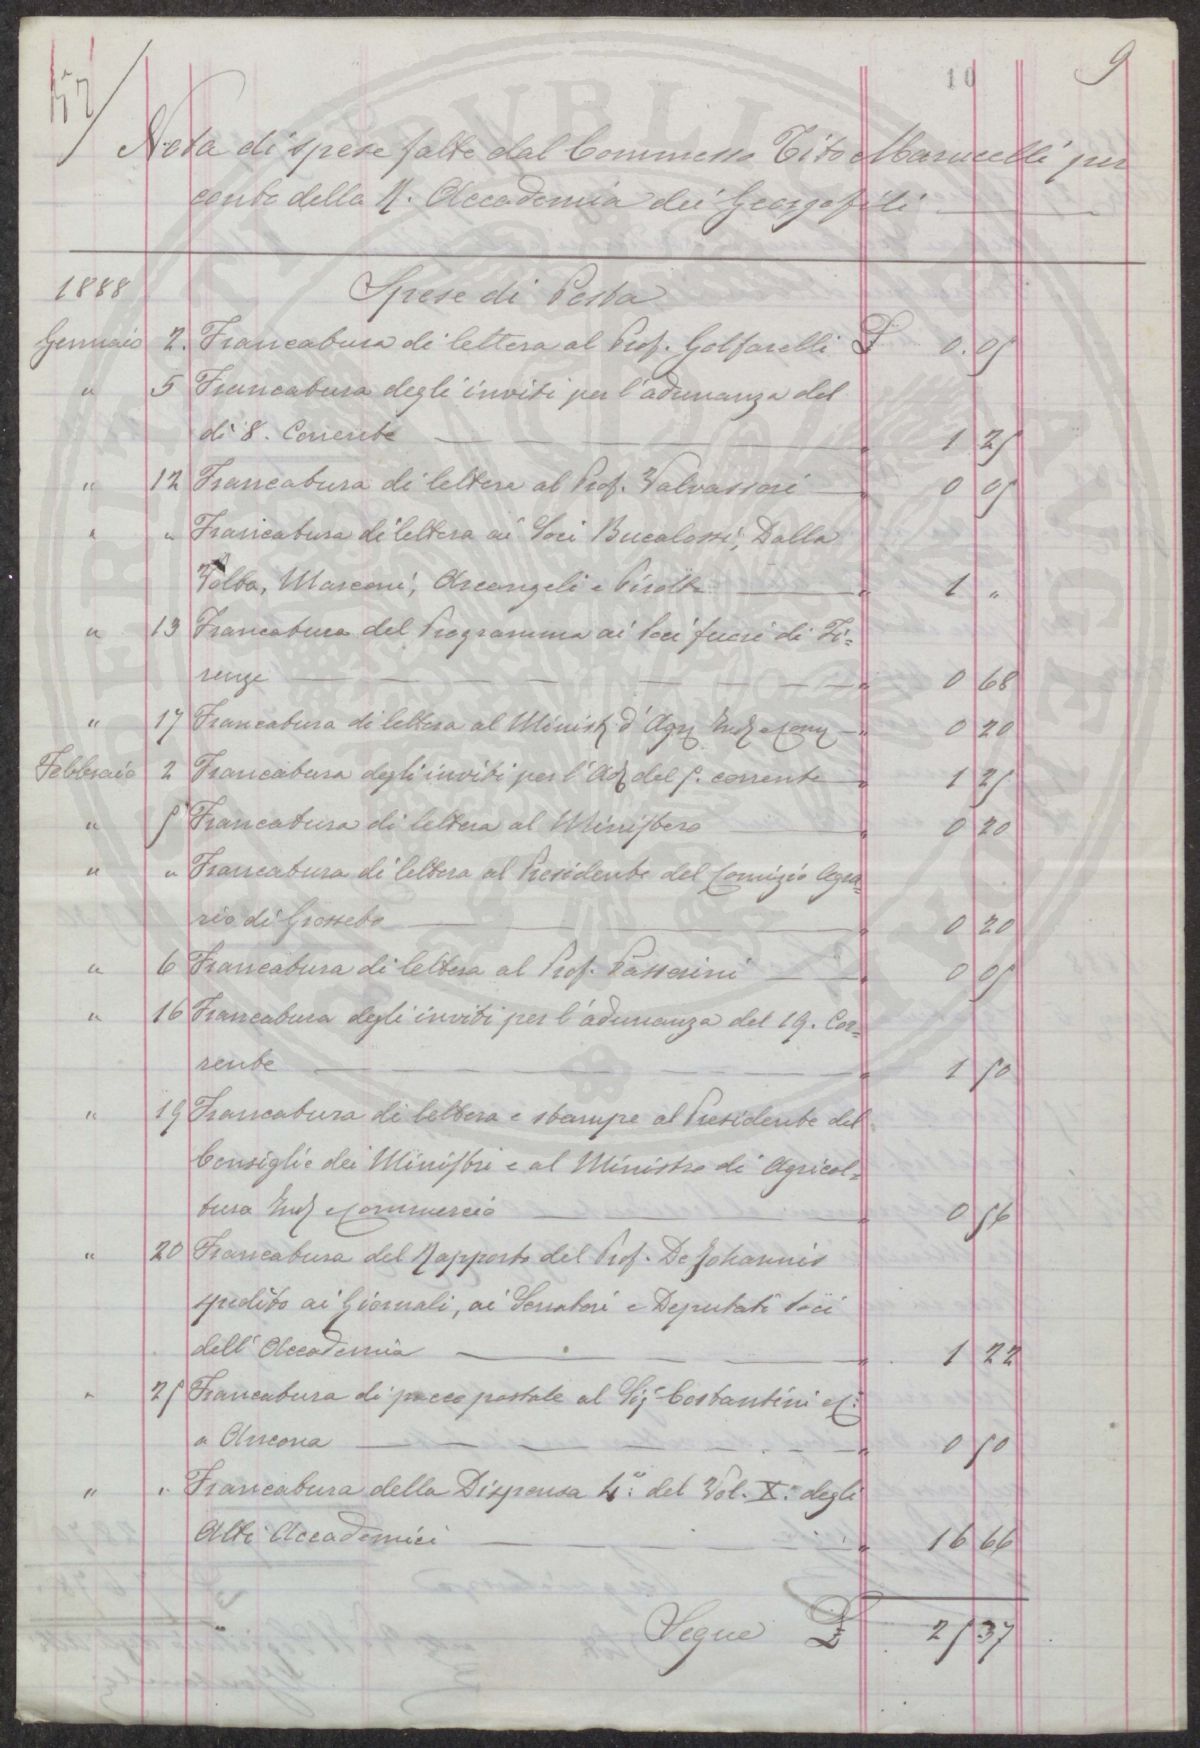 57
10
9
Nota di spese fatte dal Commesso Tito Marucelli per
conto della R. Accademia dei Georgofili
1888 Spese di Posta
Gennaio 2. Francatura di lettera al Prof. Golfarelli £ 0.05
" 5 Francatura degli inviti per l'adunanza del
di 8. Corrente " 1 25
" 12 Francatura di lettera al Prof. Valvassori " 0 05
" " Francatura di lettera ai Soci Bucalossi, Dalla
Volta, Marconi, Arcangeli e Pirotta " 1 "
" 13 Francatura del Programma ai Soci fuori di Fi=
renze " 0 68
" 17 Francatura di lettera al Minist. d'Agr. Ind. e Com. " 0 20
Febbraio 2 Francatura degli inviti per l'Ad. del 5. corrente " 1 25
" 5 Francatura di lettera al Ministero " 0 20
" " Francatura di lettera al Presidente del Comizio Agra=
rio di Grosseto " 0 20
" 6 Francatura di lettera al Prof. Passerini " 0 05
" 16 Francatura degli inviti per l'adunanza del 19. Cor=
rente " 1 50
" 19 Francatura di lettera e stampe al Presidente del
Consiglio dei Ministri e al Ministro di Agricol=
tura Ind. e Commercio " 0 56
" 20 Francatura del Rapporto del Prof. De Johannis
spedito ai Giornali, ai Senatori e Deputati Soci
dell'Accademia " 1 22
" 25 Francatura di pacco postale al Sig. Costantini
a Ancona " 0 50
" " Francatura della Dispensa 4a. del Vol. X.o degli
Atti Accademici " 16 66
Segue £ 25 37